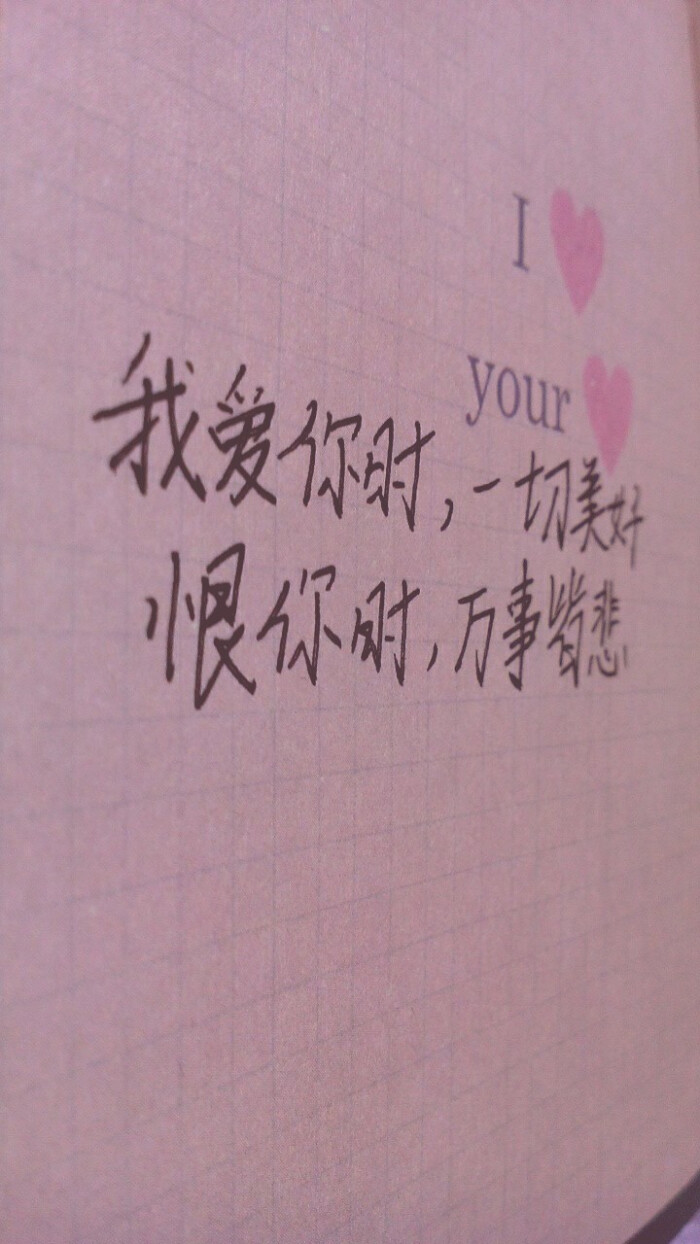 I
your
我爱你时,一切美好
恨你时,万事皆悲